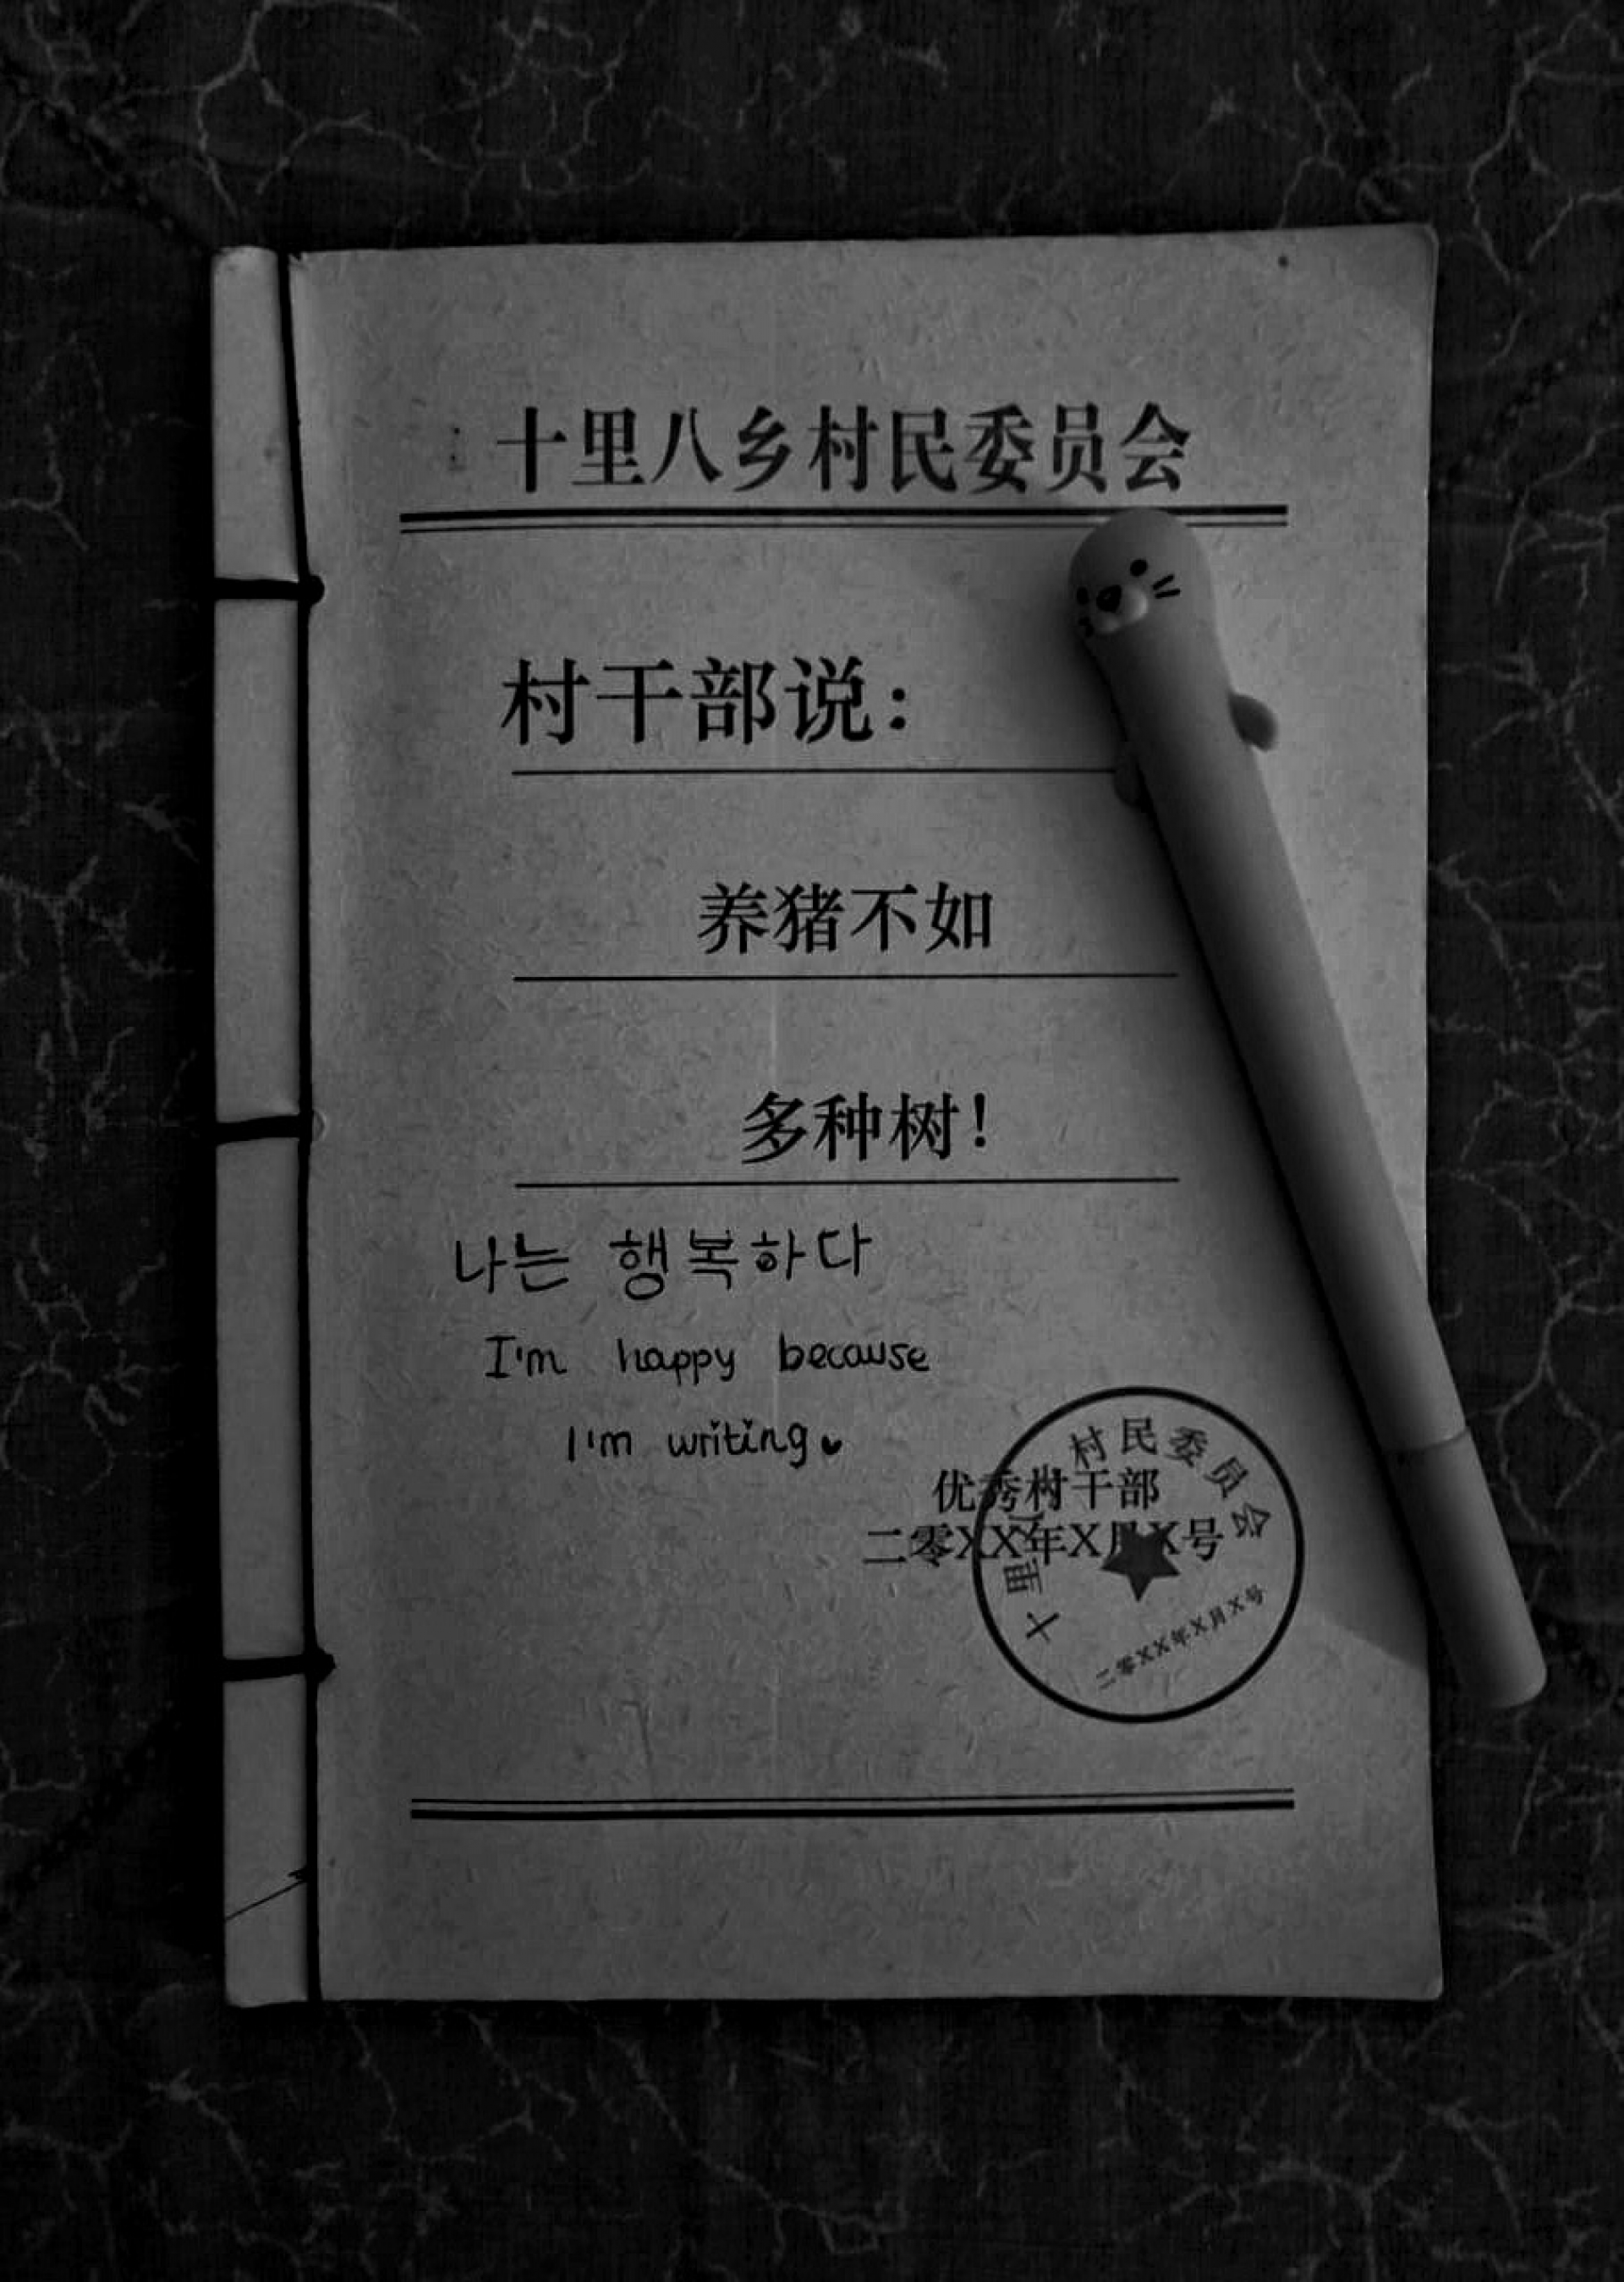 十里八乡村民委员会
村干部说：
养猪不如
多种树！
나는 행복하다
I'm happy because
I'm writing
优秀村干部
二零XX年X月X号
十里八乡村民委员会
二零XX年X月X号